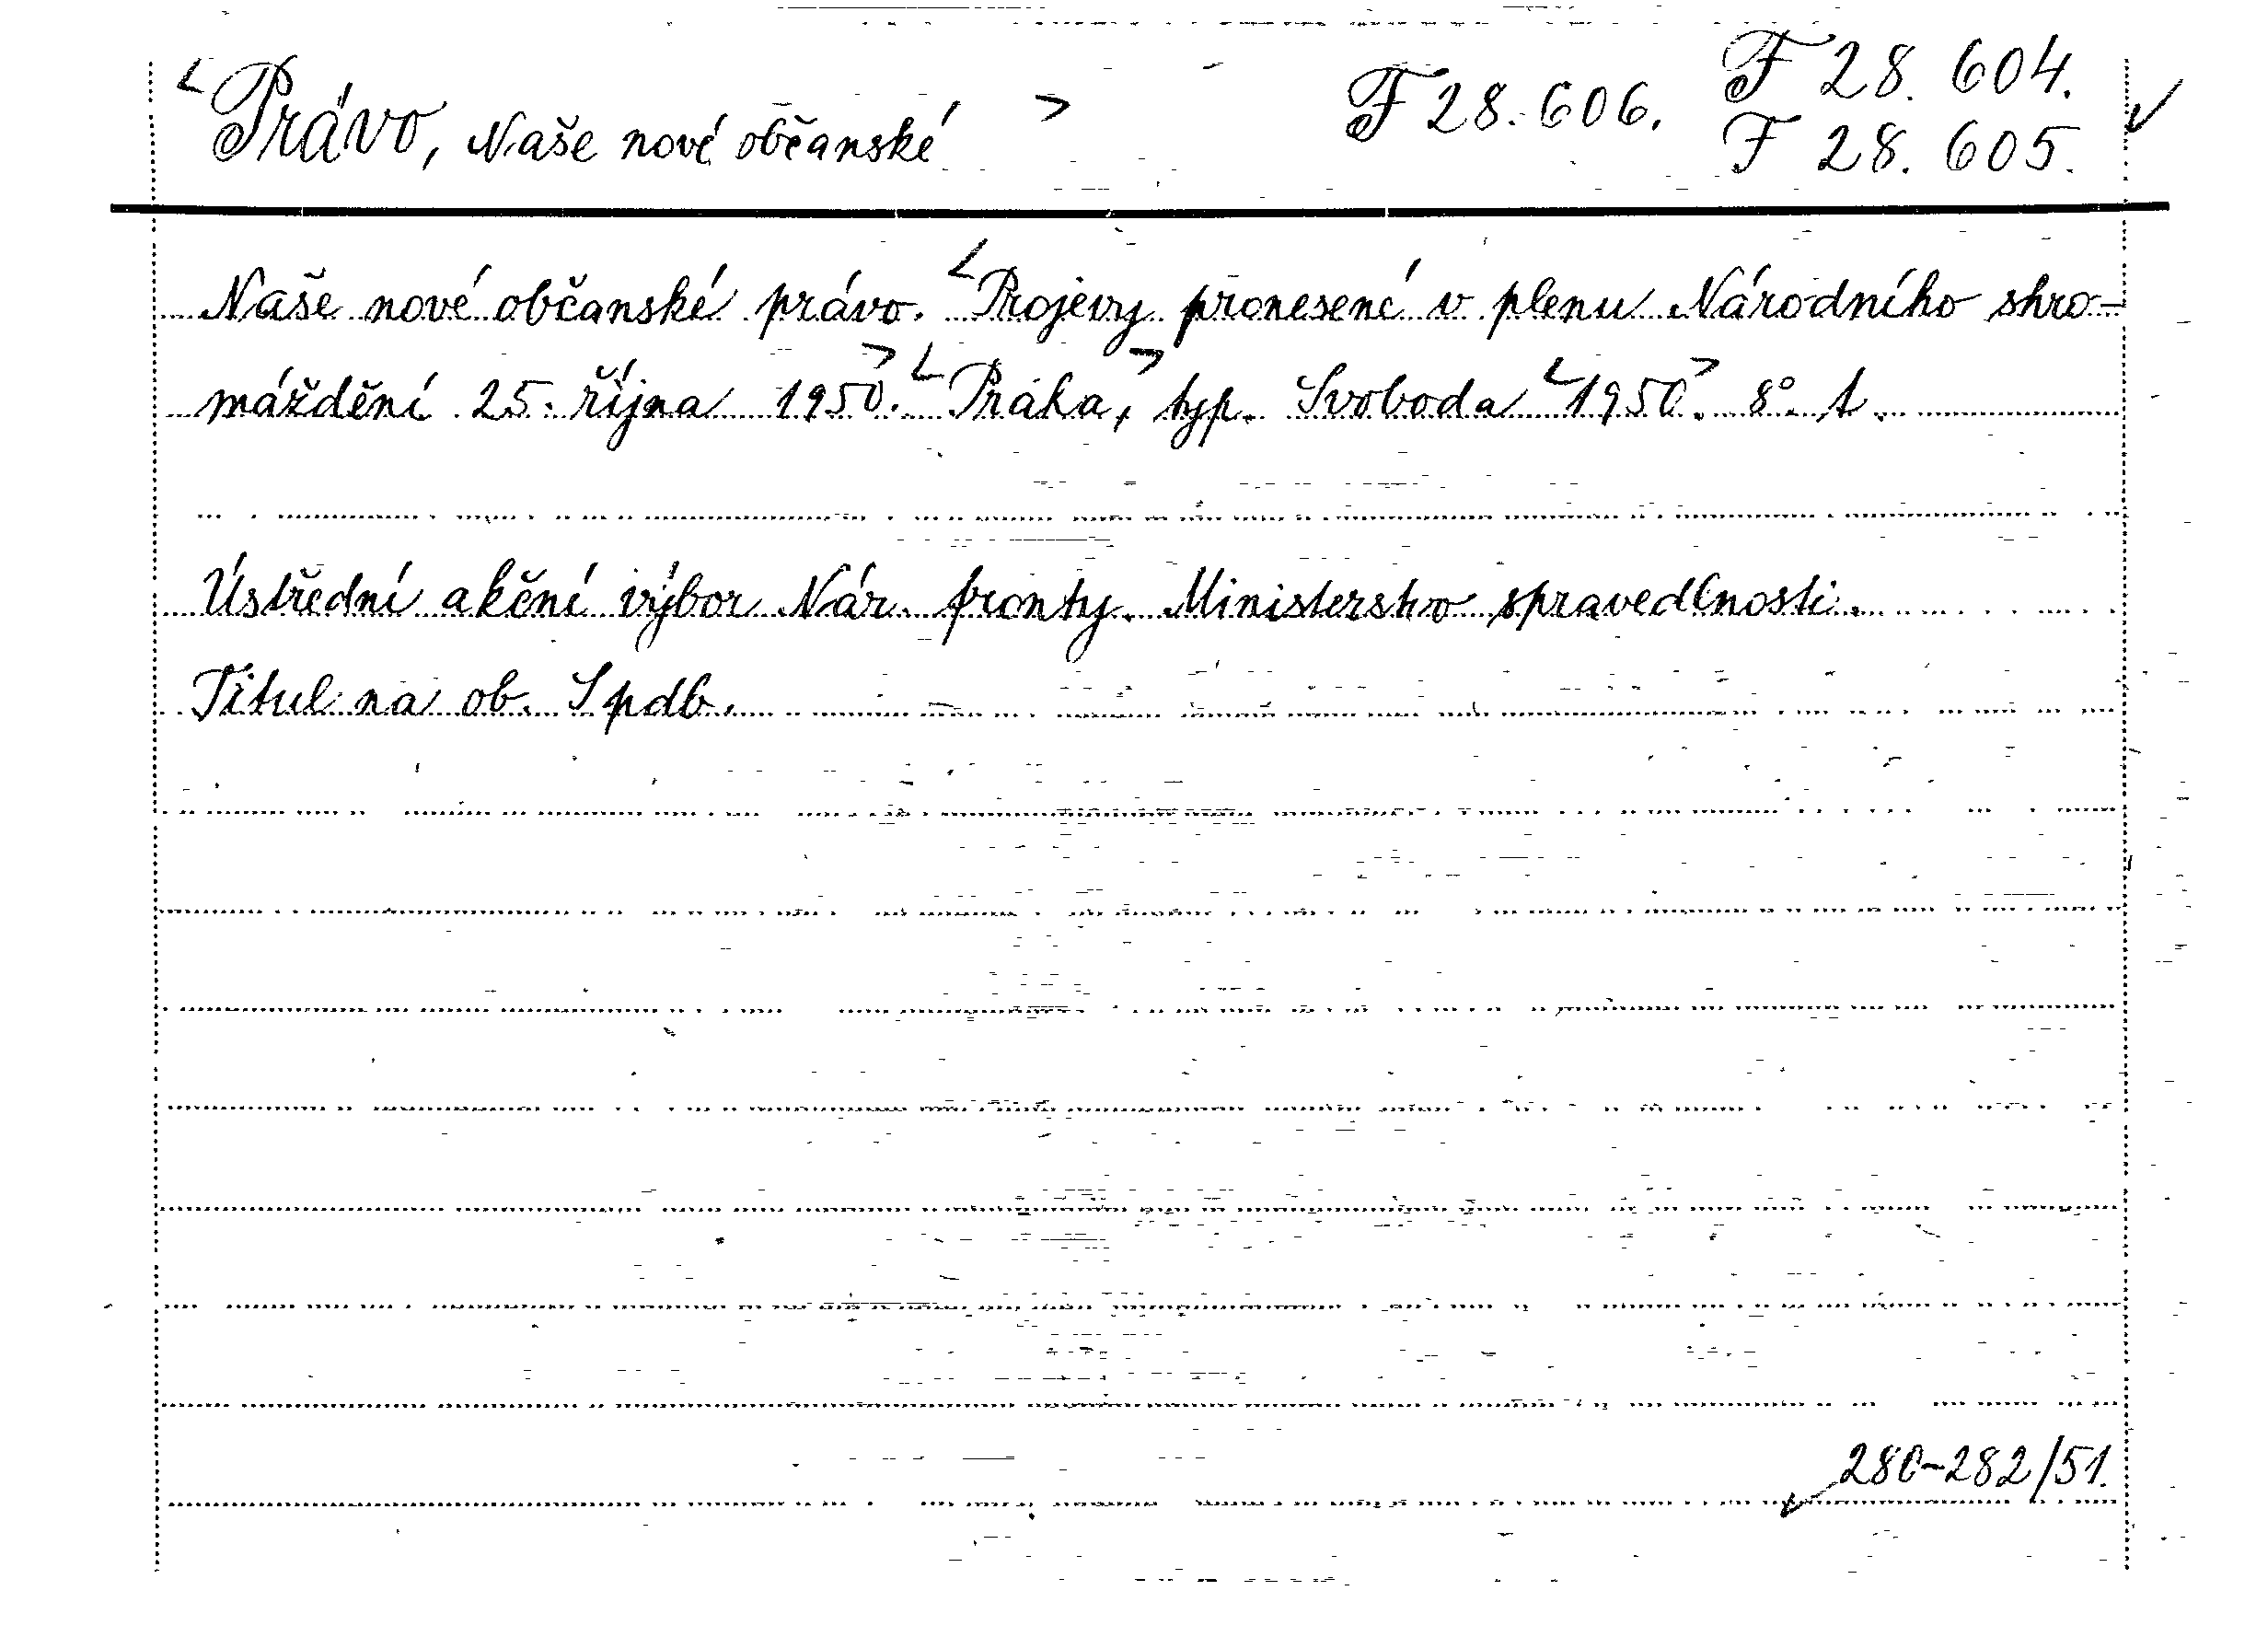 <Právo, Naše nové občanské> F 28.606. F 28.604.
F 28.605.
Naše nové občanské právo. <Projevy pronesené v plenu Národního shro-
máždění 25. října 1950.> <Praha,> typ. Svoboda <1950>. 8°. 1.
Ústřední akční výbor Nár. fronty. Ministerstvo spravedlnosti.
Titul na ob. S pdb.
280-282/51.